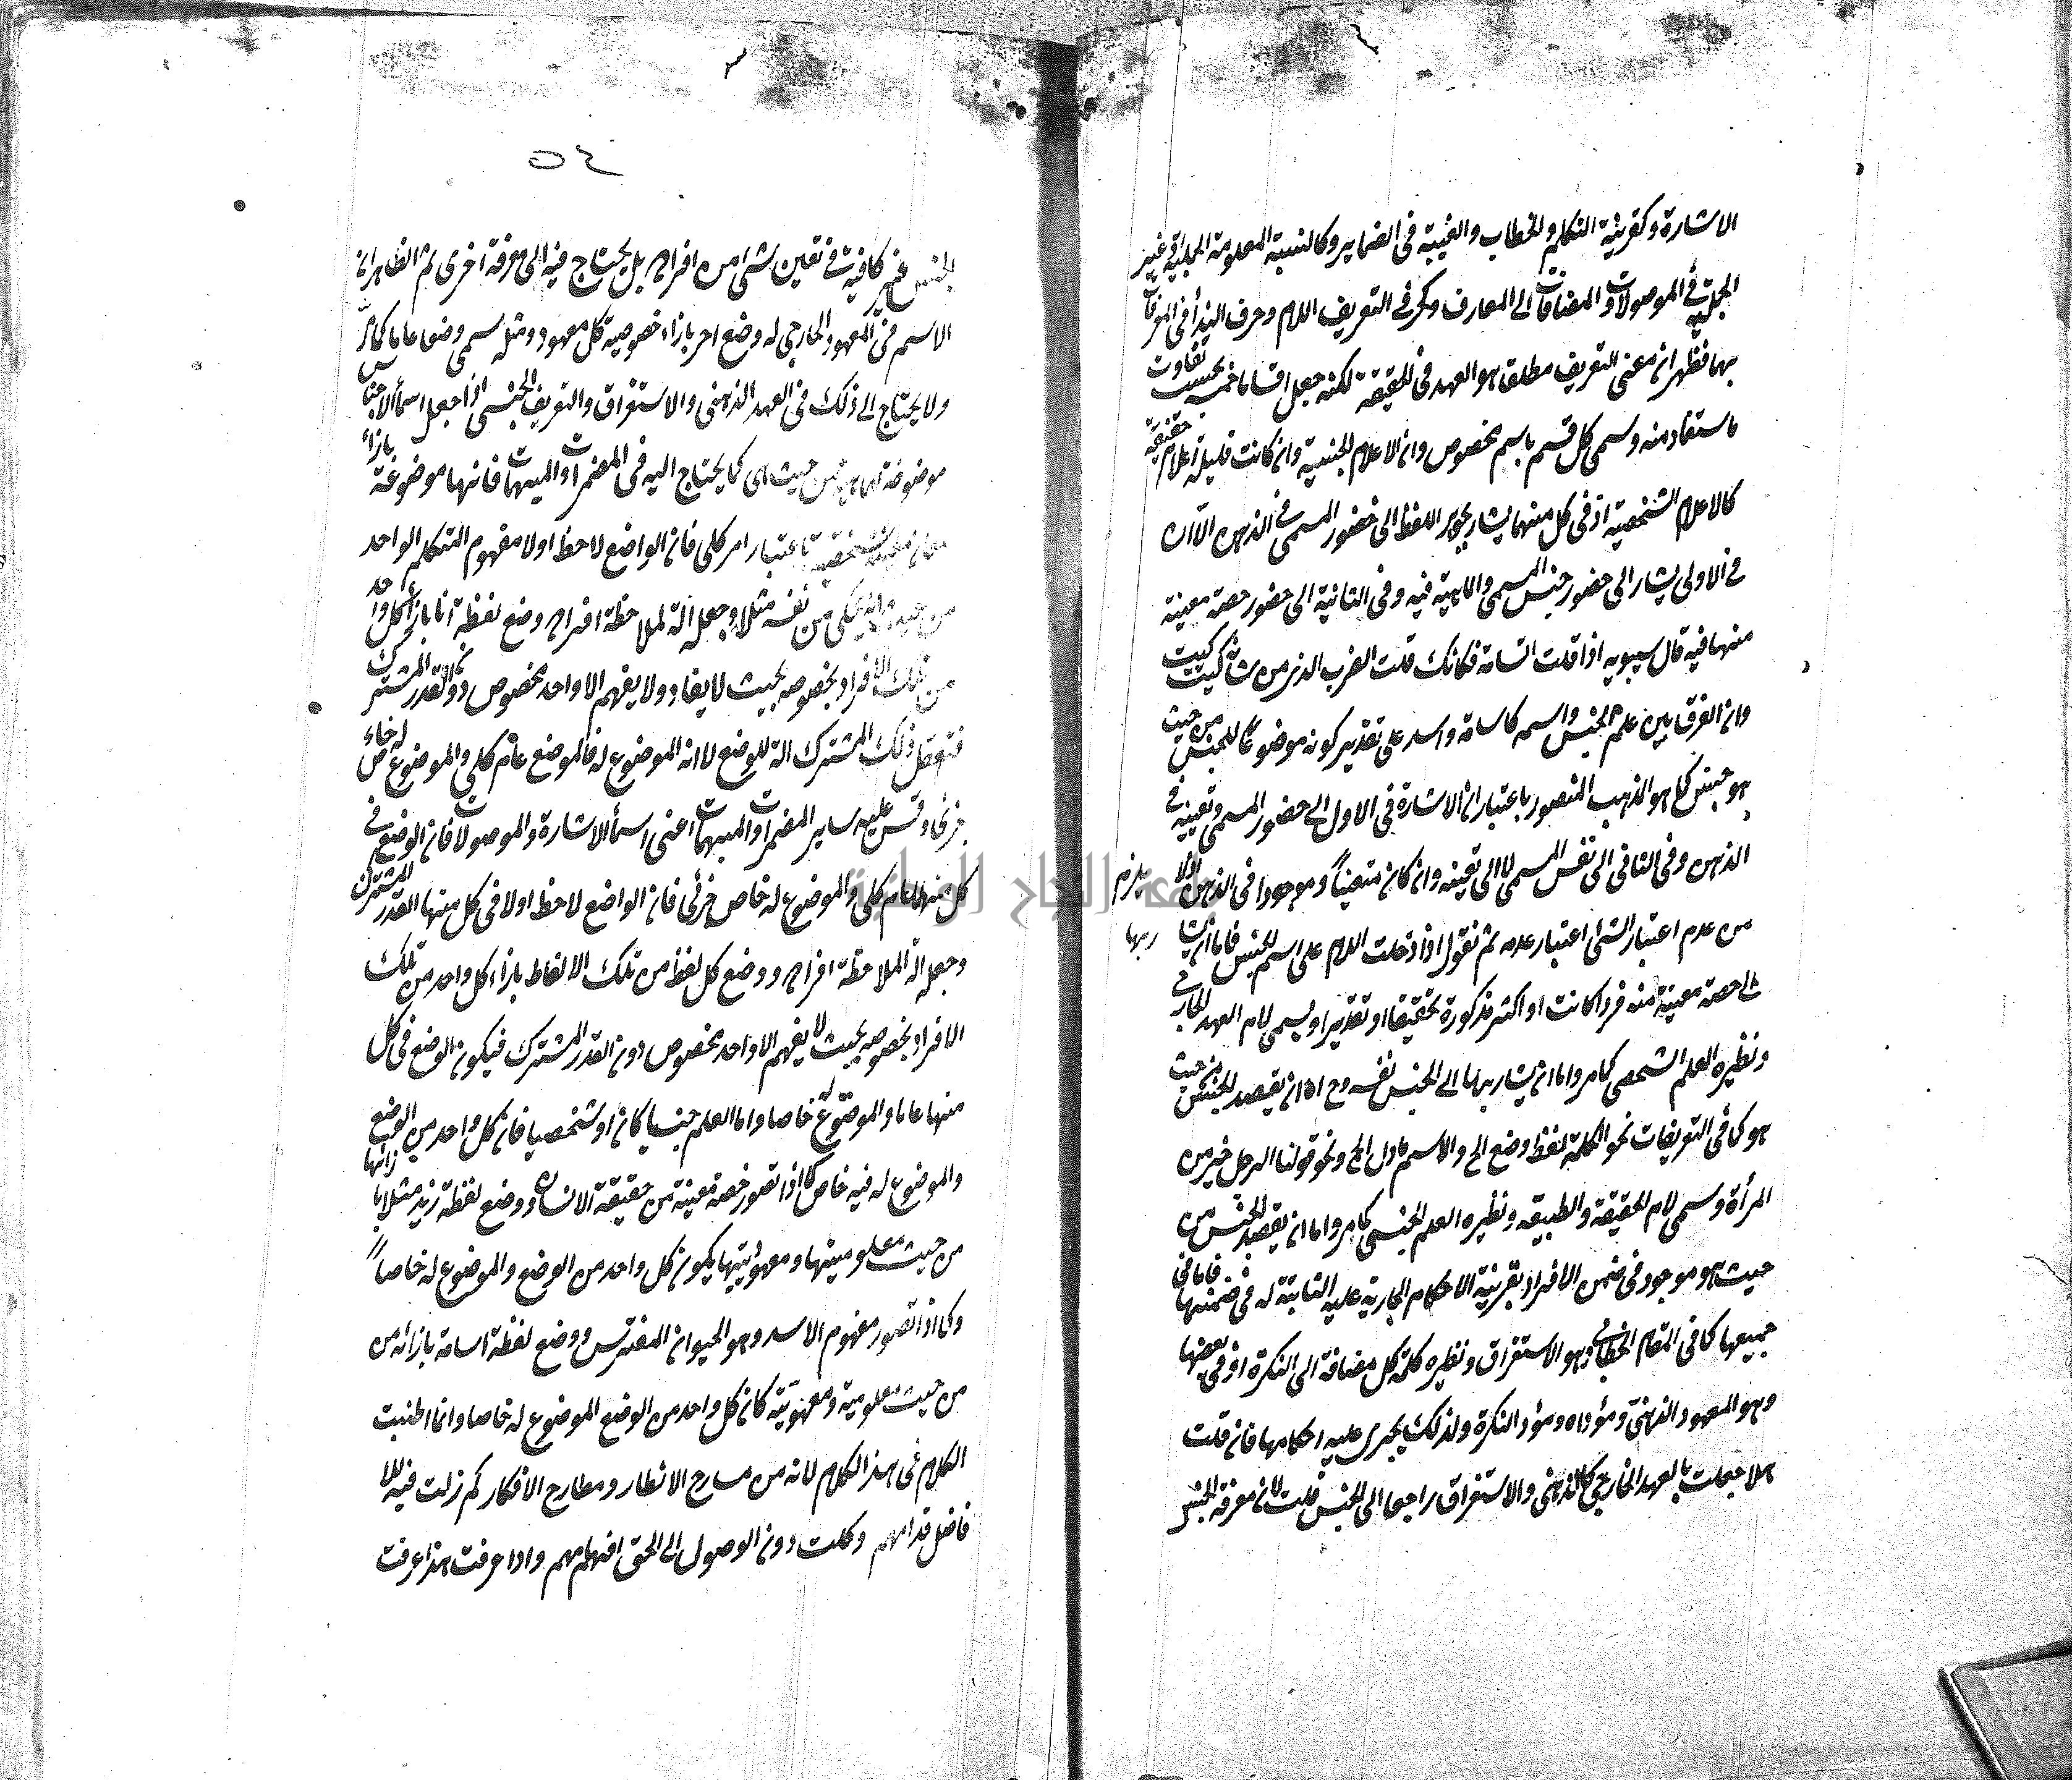 الاشارة وكقرينة التكلم والخطاب والغيبة فى الضماير وكالنسبة المعلومة الجلية فى غير
الجملية فى الموصولات والمضافات الى المعارف وكحرفى التعريف اللام وحرف الندأ فى المعرفات
بهما فظهر ان معنى التعريف مطلقا هو العهد فى الحقيقة لكنه جعل اقساما خمسة بحسب تفاوت
ما يستفاد منه وسمى كل قسم باسم مخصوص وان الاعلام الجنسية وان كانت قليلة اعلام حقيقة
كالاعلام الشخصية اذ فى كل منهما يشار بجوهر اللفظ الى حضور المسمى فى الذهن الا ان
فى الاولى يشار الى حضور جنس المسمى والماهية فيه وفى الثانية الى حضور حصة معينة
منها فيه قال سيبويه اذا قلت اسامة فكانك قلت الضرب الذى من شانه كيت كيت
وان الفرق بين علم الجنس واسمه كاسامة واسد على تقدير كونه موضوعا للجنس من حيث
هو جنس كما هو المذهب المنصور باعتبار ان الاشارة فى الاول الى حضور المسمى وتعينه فى
الذهن وفى الثانى الى نفس المسمى لا الى تعينه وان كان متعينا وموجودا فى الذهن اولا يلزم
من عدم اعتبار الشئ اعتبار عدمه ثم نقول اذا دخلت اللام على اسم الجنس فاما ان يشار بها
الى حصة معينة منه فردا كانت او اكثر مذكورة تحقيقا او تقديرا ويسمى لام العهد الخارجى
ونظيره العلم الشخصى كما مر واما ان يشار بها الى الجنس نفسه وح اما ان يقصد الجنس من حيث
هو كما فى التعريفات نحو الكلمة لفظ وضع الخ والاسم ما دل الخ ونحو قولنا الرجل خير من
المرأة وسمى لام الحقيقة والطبيعة ونظيره العلم الجنسى كما مر واما ان يقصد الجنس من
حيث هو موجود فى ضمن الافراد بقرينة الاحكام الجارية عليه الثابتة له فى ضمنها فاما فى
جميعها كما فى المقام الخطابى وهو الاستغراق ونظيره كلمة كل مضافة الى النكرة او فى بعضها
وهو المعهود الذهنى ومؤداه ومؤد النكرة ولذلك يجرى عليه احكامها فان قلت
هلا جعلت العهد الخارجى كالذهنى والاستغراق راجعا الى الجنس قلت لان معرفة الجنس
٥٤
الجنس غير كافية فى تعين شئ من افراده بل يحتاج فيه الى معرفة اخرى ثم الظاهر ان
الاسم فى المعهود الخارجى له وضع اخر بازاء خصوصية كل معهود ومثله سمى وضعا عاما كما مر
ولا يحتاج الى ذلك فى العهد الذهنى والاستغراق والتعريف الجنسى اذا جعل اسمأ الاجناس
موضوعة للماهية من حيث هى كما يحتاج اليه فى المضمرات والمبهمات فانها موضوعة بازاء
معان معينة شخصية باعتبار امر كلى فان الواضع لاحظ اولا مفهوم المتكلم الواحد
من حيث انه يحكى عن نفسه مثلا وجعله آلة لملاحظة افراده وضع لفظة انا بازاء كل واحد
من تلك الافراد بخصوصه بحيث لا يفاد ولا يفهم الا واحد مخصوص دون القدر المشترك
فتعقل ذلك المشترك آلة للوضع لا انه الموضوع له فالوضع عام كلى والموضوع له خاص
جزئى وقس عليه ساير المضمرات والمبهمات اعنى اسمأ الاشارة والموصولات فان الوضع فى
كل منهما عام كلى والموضوع له خاص جزئى فان الواضع لاحظ اولا فى كل منها القدر المشترك
وجعله آلة لملاحظة افراده ووضع كل لفظ من تلك الالفاظ بازاء كل واحد من تلك
الافراد بخصوصه بحيث لا يفهم الا واحد مخصوص دون القدر المشترك فيكون الوضع فى كل
منها عاما والموضوع له خاصا واما العلم جنسيا كان او شخصيا فان كل واحد من الوضع
والموضوع له فيه خاص كما اذا تصور حصة معينة من حقيقة الانسان ووضع لفظة زيد مثلا بازائها
من حيث معلوميتها ومعهوديتها يكون كل واحد من الوضع والموضوع له خاصا
وكما اذا تصور مفهوم الاسد وهو الحيوان المفترس ووضع لفظة اسامة بازائه من
من حيث معلوميته ومعهوديته كان كل واحد من الوضع الموضوع له خاصا وانما اطنبت
الكلام فى هذا الكلام لانه من مسارح الانظار ومطارح الافكار كم زلت فيه للا
فاضل اقدامهم وكلت دون الوصول الى الحق افهامهم واذا عرفت هذا عرفت